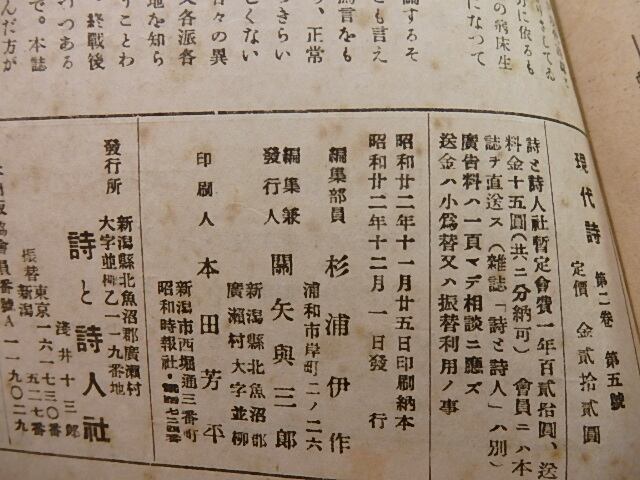 に依るも
の病床生
になつて
論するそ
とも言え
罵言をも
、正常
つきらい
しくない
々の異
又各派各
地を知ら
うことわ
終戰後
つつある
で。本誌
んだ方が
現代詩 第二卷 第五號
定價 金貳拾貳圓
詩と詩人社暫定會費一年百貳拾圓、送
料金十五圓(共ニ分納可)會員ニハ本
誌ヲ直送ス(雜誌「詩と詩人」ハ別)
廣告料ハ一頁マデ相談ニ應ズ
送金ハ小爲替又ハ振替利用ノ事
昭和廿二年十一月廿五日印刷納本
昭和廿二年十二月一日發行
編集部員 杉浦伊作
浦和市岸町二ノ二六
編集兼
發行人 關矢與三郎
新潟縣北魚沼郡
廣瀬村大字並柳
印刷人 本田芳平
新潟市西堀通三番町
昭和時報社
發行所
新潟縣北魚沼郡廣瀬村
大字並柳乙一一九番地
詩と詩人社
淺井十三郎
振替 東京一六一七三〇番
新潟 五二七番
會員番號A一一九〇二九